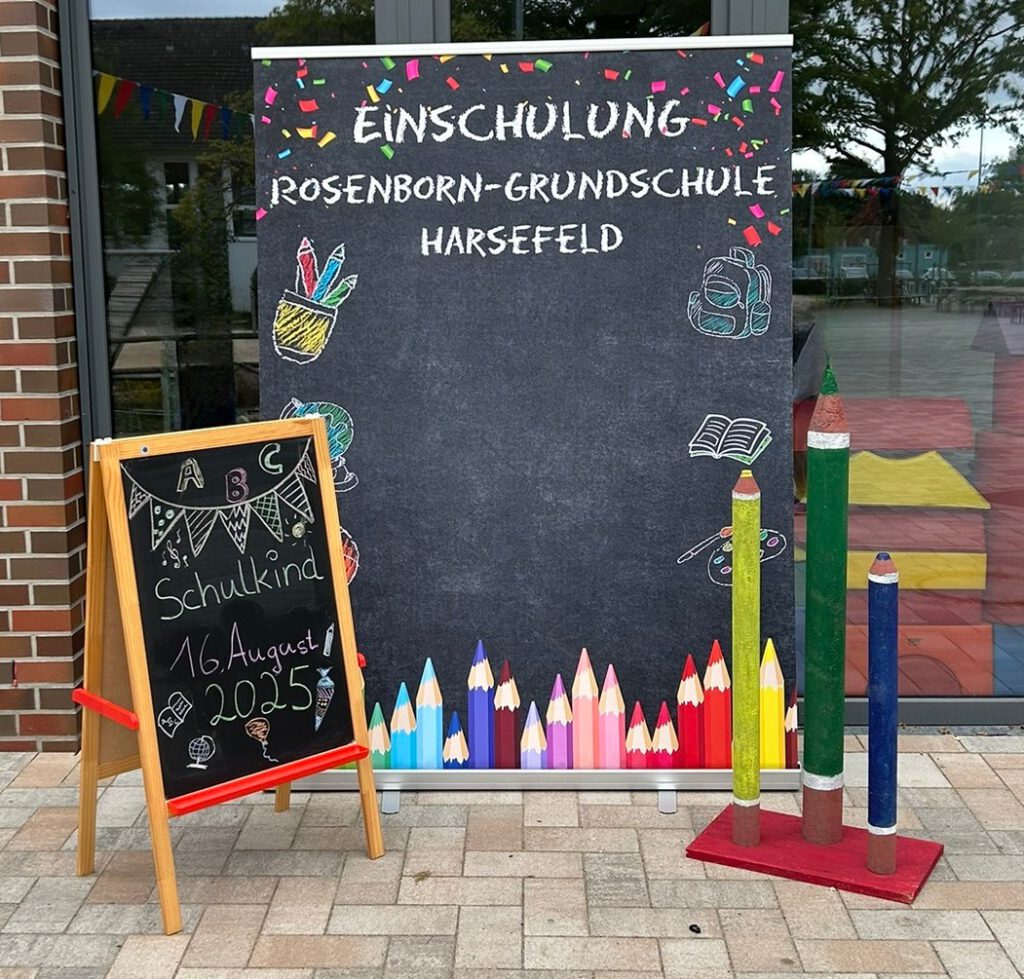 EINSCHULUNG
ROSENBORN-GRUNDSCHULE
HARSEFELD
A B C
Schulkind
16. August
2025